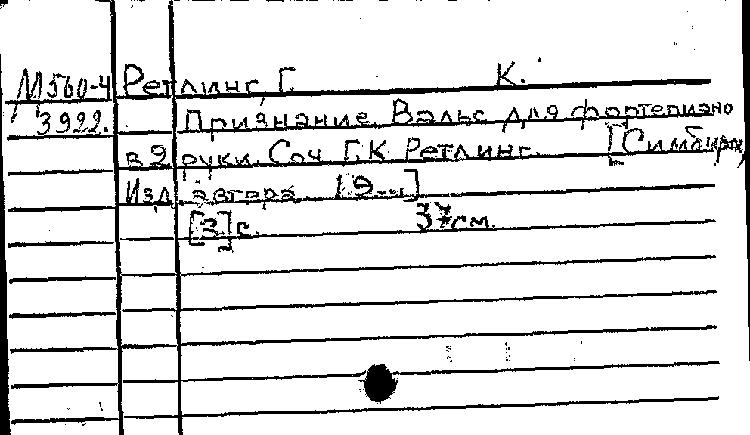 М560-4 Ретлинг, Г. К.
3922. Признание. Вальс для фортепиано
в 2 руки. Соч. Г.К. Ретлинг. [Симбирск,
Изд. автора
[3] с. 37 см.